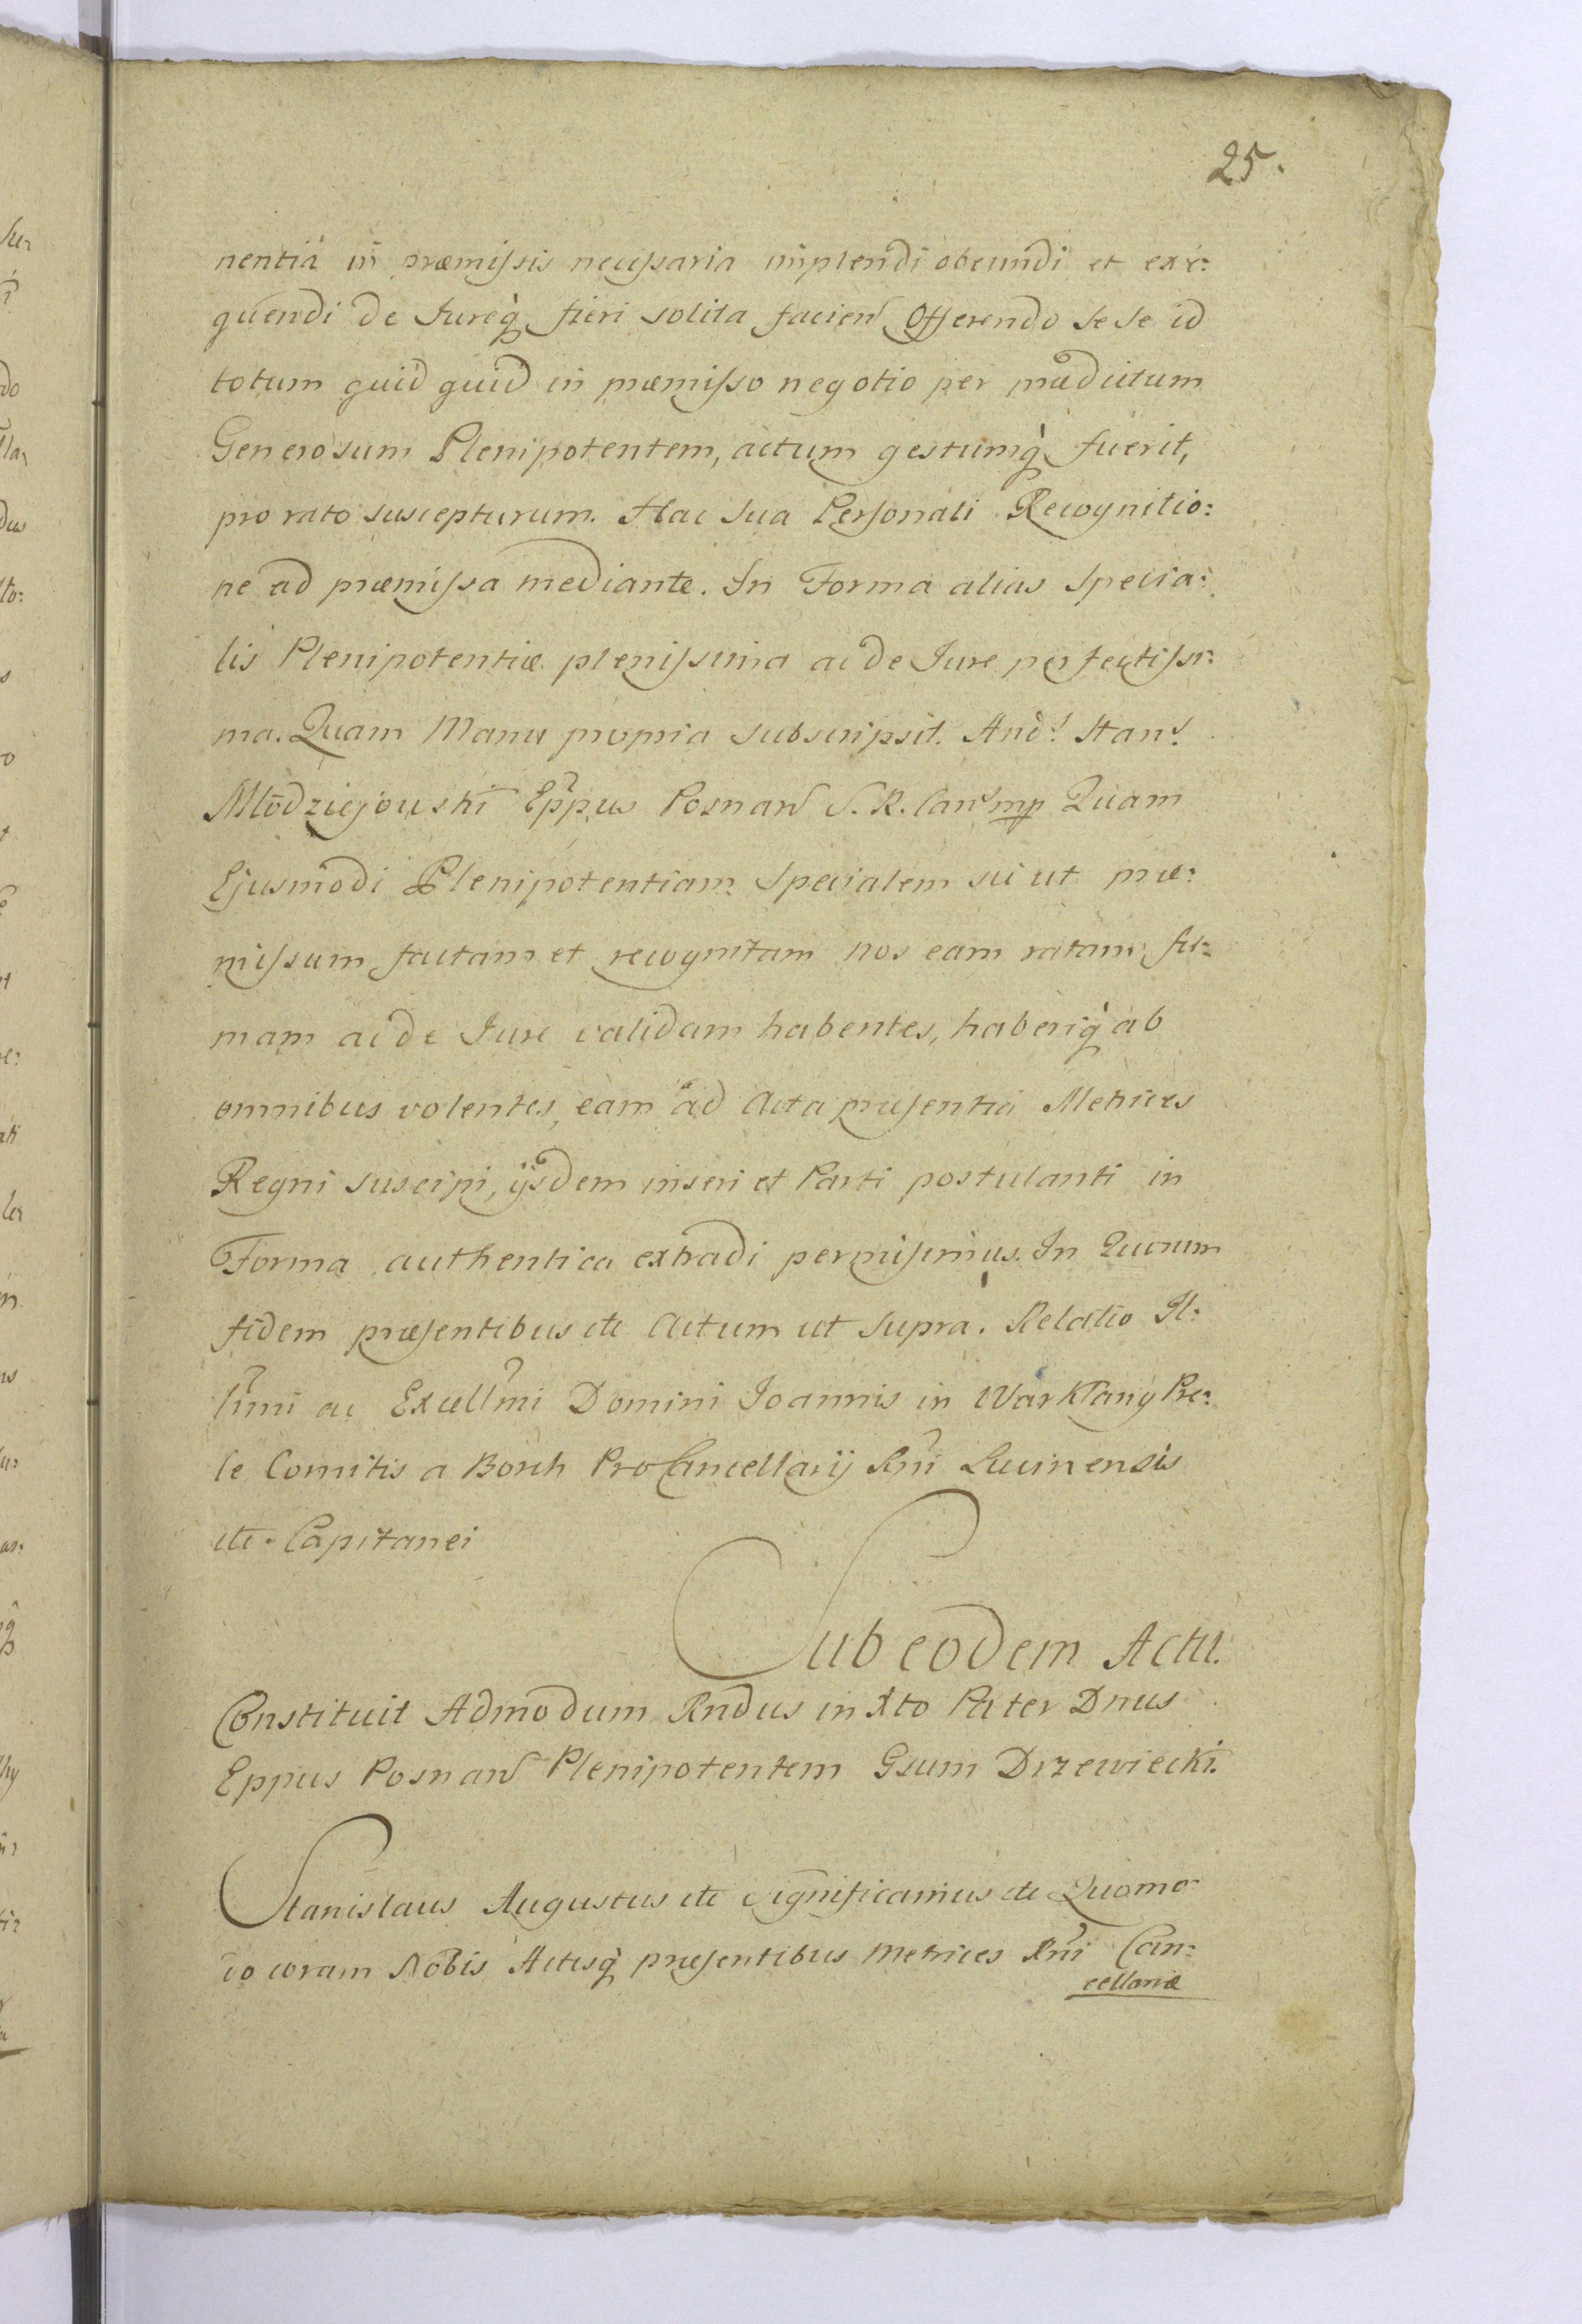 25.
nentia in præmissis necessaria implendi obeundi et exe:
quendi de Jureq̀ fieri solita facien Offerendo se se id
totum quid quid in præmisso negotio per prædictum
Generosum Plenipotentem, actum gestumq̀ fuerit,
pro rato suscepturum. Hac sua Personali Recognitio:
ne ad præmissa mediante. In Forma alias specia:
lis Plenipotentiæ plenissima ac de Jure perfectissi:
ma. Quam Manu propria subscripsit. Andˢ. Stanˢ.
Młodziejowski Eppus Posnan S. R. Canˢ mp Quam
Ejusmodi Plenipotentiam specialem sic ut præ:
missum factam et recognitam nos eam ratam fir:
mam ac de Jure validam habentes, haberiq̀ ab
omnibus volentes, eam ad Acta præsentia Metrices
Regni suscipi, ijsdem inseri et Parti postulanti in
Forma authentica extradi permisimus. In Quorum
fidem præsentibus etc Actum ut supra. Relatio Il:
lmi ac Excellmi Domini Joannis in Warkłany Pre:
le Comitis a Borch ProCancellarij Rni Lucinensis
etc. Capitanei
Sub eodem Actu.
Constituit Admodum Rndus in Xto Pater Dnus
Eppus Posnan Plenipotentem Gsum Drzewiecki.
Stanislaus Augustus etc Significamus etc Quomo
do coram Nobis Actisq̀ præsentibus Metrices Rni Can:
cellariæ